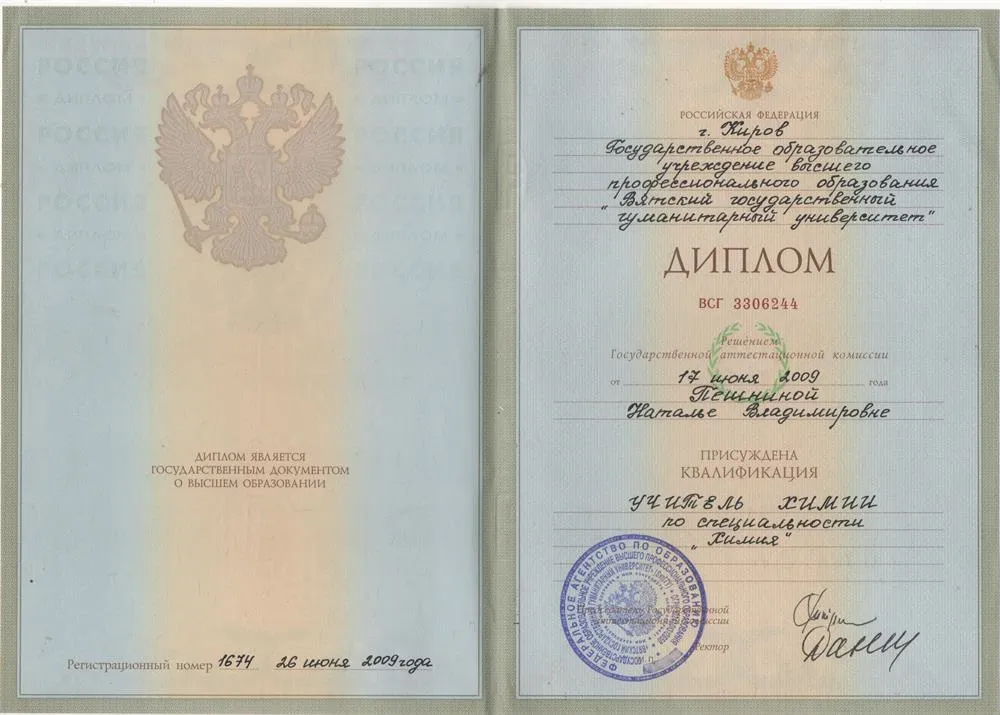 ДИПЛОМ ЯВЛЯЕТСЯ
ГОСУДАРСТВЕННЫМ ДОКУМЕНТОМ
О ВЫСШЕМ ОБРАЗОВАНИИ
Регистрационный номер 1674 26 июня 2009 года
РОССИЙСКАЯ ФЕДЕРАЦИЯ
г. Киров
Государственное образовательное
учреждение высшего
профессионального образования
"Вятский государственный
гуманитарный университет"
ДИПЛОМ
ВСГ 3306244
Решением
Государственной аттестационной комиссии
от 17 июня 2009 года
Пешниной
Наталье Владимировне
ПРИСУЖДЕНА
КВАЛИФИКАЦИЯ
УЧИТЕЛЬ ХИМИИ
по специальности
"Химия"
Председатель Государственной
аттестационной комиссии
Ректор
ФЕДЕРАЛЬНОЕ АГЕНТСТВО ПО ОБРАЗОВАНИЮ